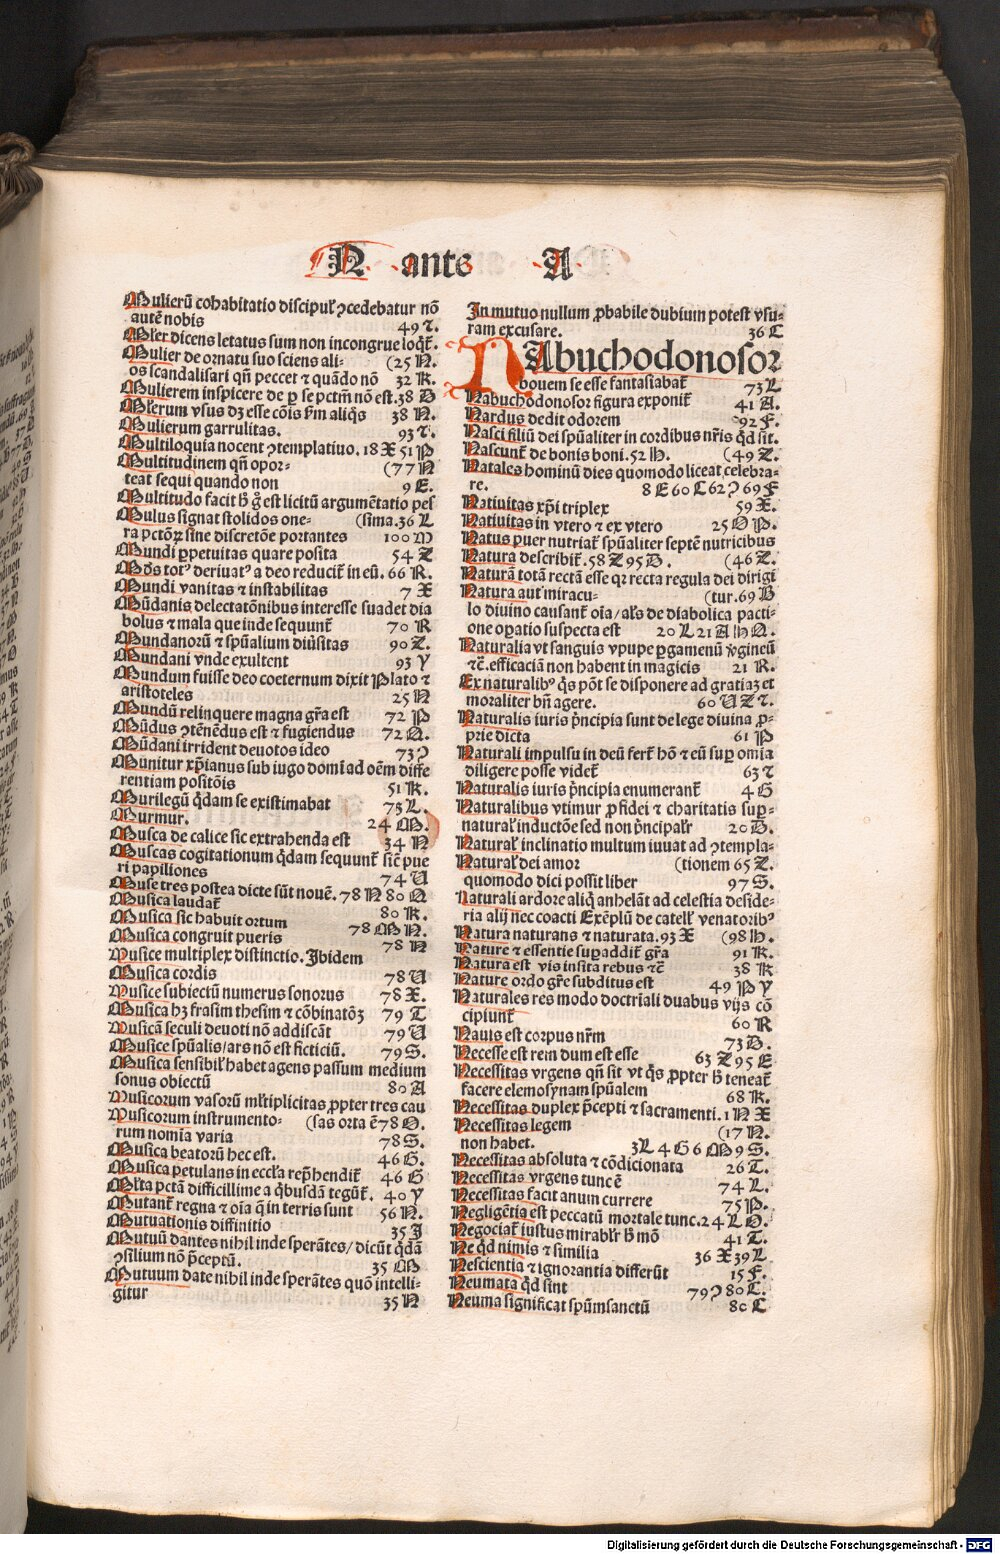 N ante A
Mulierū cohabitatio discipul' ꝯcedebatur nō
autē nobis 49 ⁊.
Mler dicens letatus sum non incongrue loqt̄.
Mulier de ornatu suo sciens ali- (25 N.
os scandalisari qn̄ peccet ⁊ quādo nō 32 K.
Mulierem inspicere de ꝑ se pctm̄ nō est. 38 D
Mlerum vsus dꝫ esse cōis ẜm aliqs 38 N.
Mulierum garrulitas. 93 ⁊.
Multiloquia nocent ꝯtemplatiuo. 18 X 51 P
Multitudinem qn̄ opor- (77 N
teat sequi quando non 9 E.
Multitudo facit ꝙ est licitū argumētatio pes
Mulus signat stolidos one- (sima. 36 L
ra pctōꝝ sine discretōe portantes 100 M
Mundi ꝑpetuitas quare posita 54 Z
Mōs tot' deriuat' a deo reducit̄ in eū. 66 R.
Mundi vanitas ⁊ instabilitas 7 X
Mūdanis delectatōnibus interesse suadet dia
bolus ⁊ mala que inde sequunt̄ 70 R
Mundanorū ⁊ spūalium diūsitas 90 Z.
Mundani vnde exultent 93 Y
Mundum fuisse deo coeternum dixit Plato ⁊
aristoteles 25 N
Mundū relinquere magna gr̄a est 72 P
Mūdus ꝯtēnēdus est ⁊ fugiendus 72 Q.
Mūdani irrident deuotos ideo 73 ꝯ
Munitur xp̄ianus sub iugo domī ad oēm diffe
rentiam positōis 51 K.
Murilegū qdam se existimabat 73 L.
Murmur. 24 M.
Musca de calice sic extrahenda est 34 N
Muscas cogitationum qdam sequunt̄ sicē pue
ri papiliones 74 U
Muse tres postea dicte sūt nouē. 78 N 80 Q
Musica laudat̄ 80 K.
Musica sic habuit ortum 78 M N.
Musica congruit pueris 78 N
Musice multiplex distinctio. Ibidem
Musica cordis 78 U
Musice subiectū numerus sonorus 78 X.
Musica hꝫ frasim thesim ⁊ cōbinatōꝫ 79 T
Musicā seculi deuoti nō addiscāt 79 U
Musice spūalis/ars nō est ficticiū. 79 S.
Musica sensibil' habet agens passum medium
sonus obiectū 80 A
Musicorum vasorū ml'tiplicitas ꝓpter tres cau
Musicorum instrumento- (sas orta ē 78 O.
rum nomīa varia 78 S.
Musica beatorū hec est. 46 G.
Musica petulans in eccl'a rep̄hendit̄ 46 G
Ml'ta pctā difficillime a qbusdā tegūt̄. 40 Y
Mutant̄ regna ⁊ oīa q̄ in terris sunt 56 N.
Mutuationis diffinitio 35 I
Mutuū dantes nihil inde sperātes/dicūt qdā
ꝯsilium nō p̄ceptū. 35 M
Mutuum date nihil inde sperātes quō intelli-
gitur 35 N
In mutuo nullum ꝓbabile dubium potest vsu-
ram excusare. 36 C
NAbuchodonosor
bouem se esse fantasiabat̄ 73 L
Nabuchodonosor figura exponit̄ 41 A.
Nardus dedit odorem 92 F.
Nasci filiū dei spūaliter in cordibus nr̄is qd sit.
Nascunt̄ de bonis boni. 52 H. (49 Z.
Natales hominū dies quomodo liceat celebra-
re. 8 E 60 C 62 ꝯ 69 F
Natiuitas xp̄i triplex 59 X.
Natiuitas in vtero ⁊ ex vtero 25 O P.
Natus puer nutriat̄ spūaliter septē nutricibus
Natura describit̄. 58 Z 95 D. (46 Z.
Naturā totā rectā esse qr recta regula dei dirigi
Natura aut' miracu- (tur. 69 B
lo diuino causant̄ oīa/al's de diabolica pacti-
one oꝑatio suspecta est 20 L 21 A H Q.
Naturalia vt sanguis vpupe ꝑgamenū v̄gineū
⁊c̄. efficaciā non habent in magicis 21 R.
Ex naturalib' qs pōt se disponere ad gratiaꝫ et
moraliter bn̄ agere. 60 U Z ⁊.
Naturalis iuris p̄ncipia sunt de lege diuina ꝓ-
prie dicta 61 P
Naturali impulsu in deū fert̄ hō ⁊ eū suꝑ omia
diligere posse videt̄ 63 ⁊
Naturalis iuris p̄ncipia enumerant̄ 4 G
Naturalibus vtimur ꝓ fidei ⁊ charitatis suꝑ-
natural' inductōe sed non p̄ncipal'r 20 D.
Natural' inclinatio multum iuuat ad ꝯtempla-
Natural' dei amor (tionem 65 Z.
quomodo dici possit liber 97 S.
Naturali ardore aliq anhelāt ad celestia deside-
ria alij nec coacti Exēplū de catell' venatorib'
Natura naturans ⁊ naturata. 93 X (98 H.
Nature ⁊ essentie suꝑaddit̄ gr̄a 91 K.
Natura est vis insita rebus ⁊c̄ 38 K
Nature ordo gr̄e subditus est 49 P Y
Naturales res modo doctriali duabus vijs cō
cipiunt̄ 60 R
Nauis est corpus nr̄m 73 D.
Necesse est rem dum est esse 63 Z 95 E
Necessitas vrgens qn̄ sit vt qs ꝓpter teneat̄
facere elemosynam spūalem 68 K.
Necessitas duplex p̄cepti ⁊ sacramenti. 1 N X
Necessitas legem (17 N.
non habet. 3 L 4 G 6 M 9 S.
Necessitas absoluta ⁊ cōdicionata 26 T.
Necessitas vrgens tunc ē 74 L.
Necessitas facit anum currere 75 P.
Negligētia est peccatū mortale tunc. 24 L O.
Negociat̄ iustus mirabl'r mō 41 T.
Ne qd nimis ⁊ similia 36 X 39 L
Nescientia ⁊ ignorantia differūt 15 F.
Neumata qd sint 79 ꝯ 80 C.
Neuma significat spūmsanctū 80 C
Digitalisierung gefördert durch die Deutsche Forschungsgemeinschaft - DFG